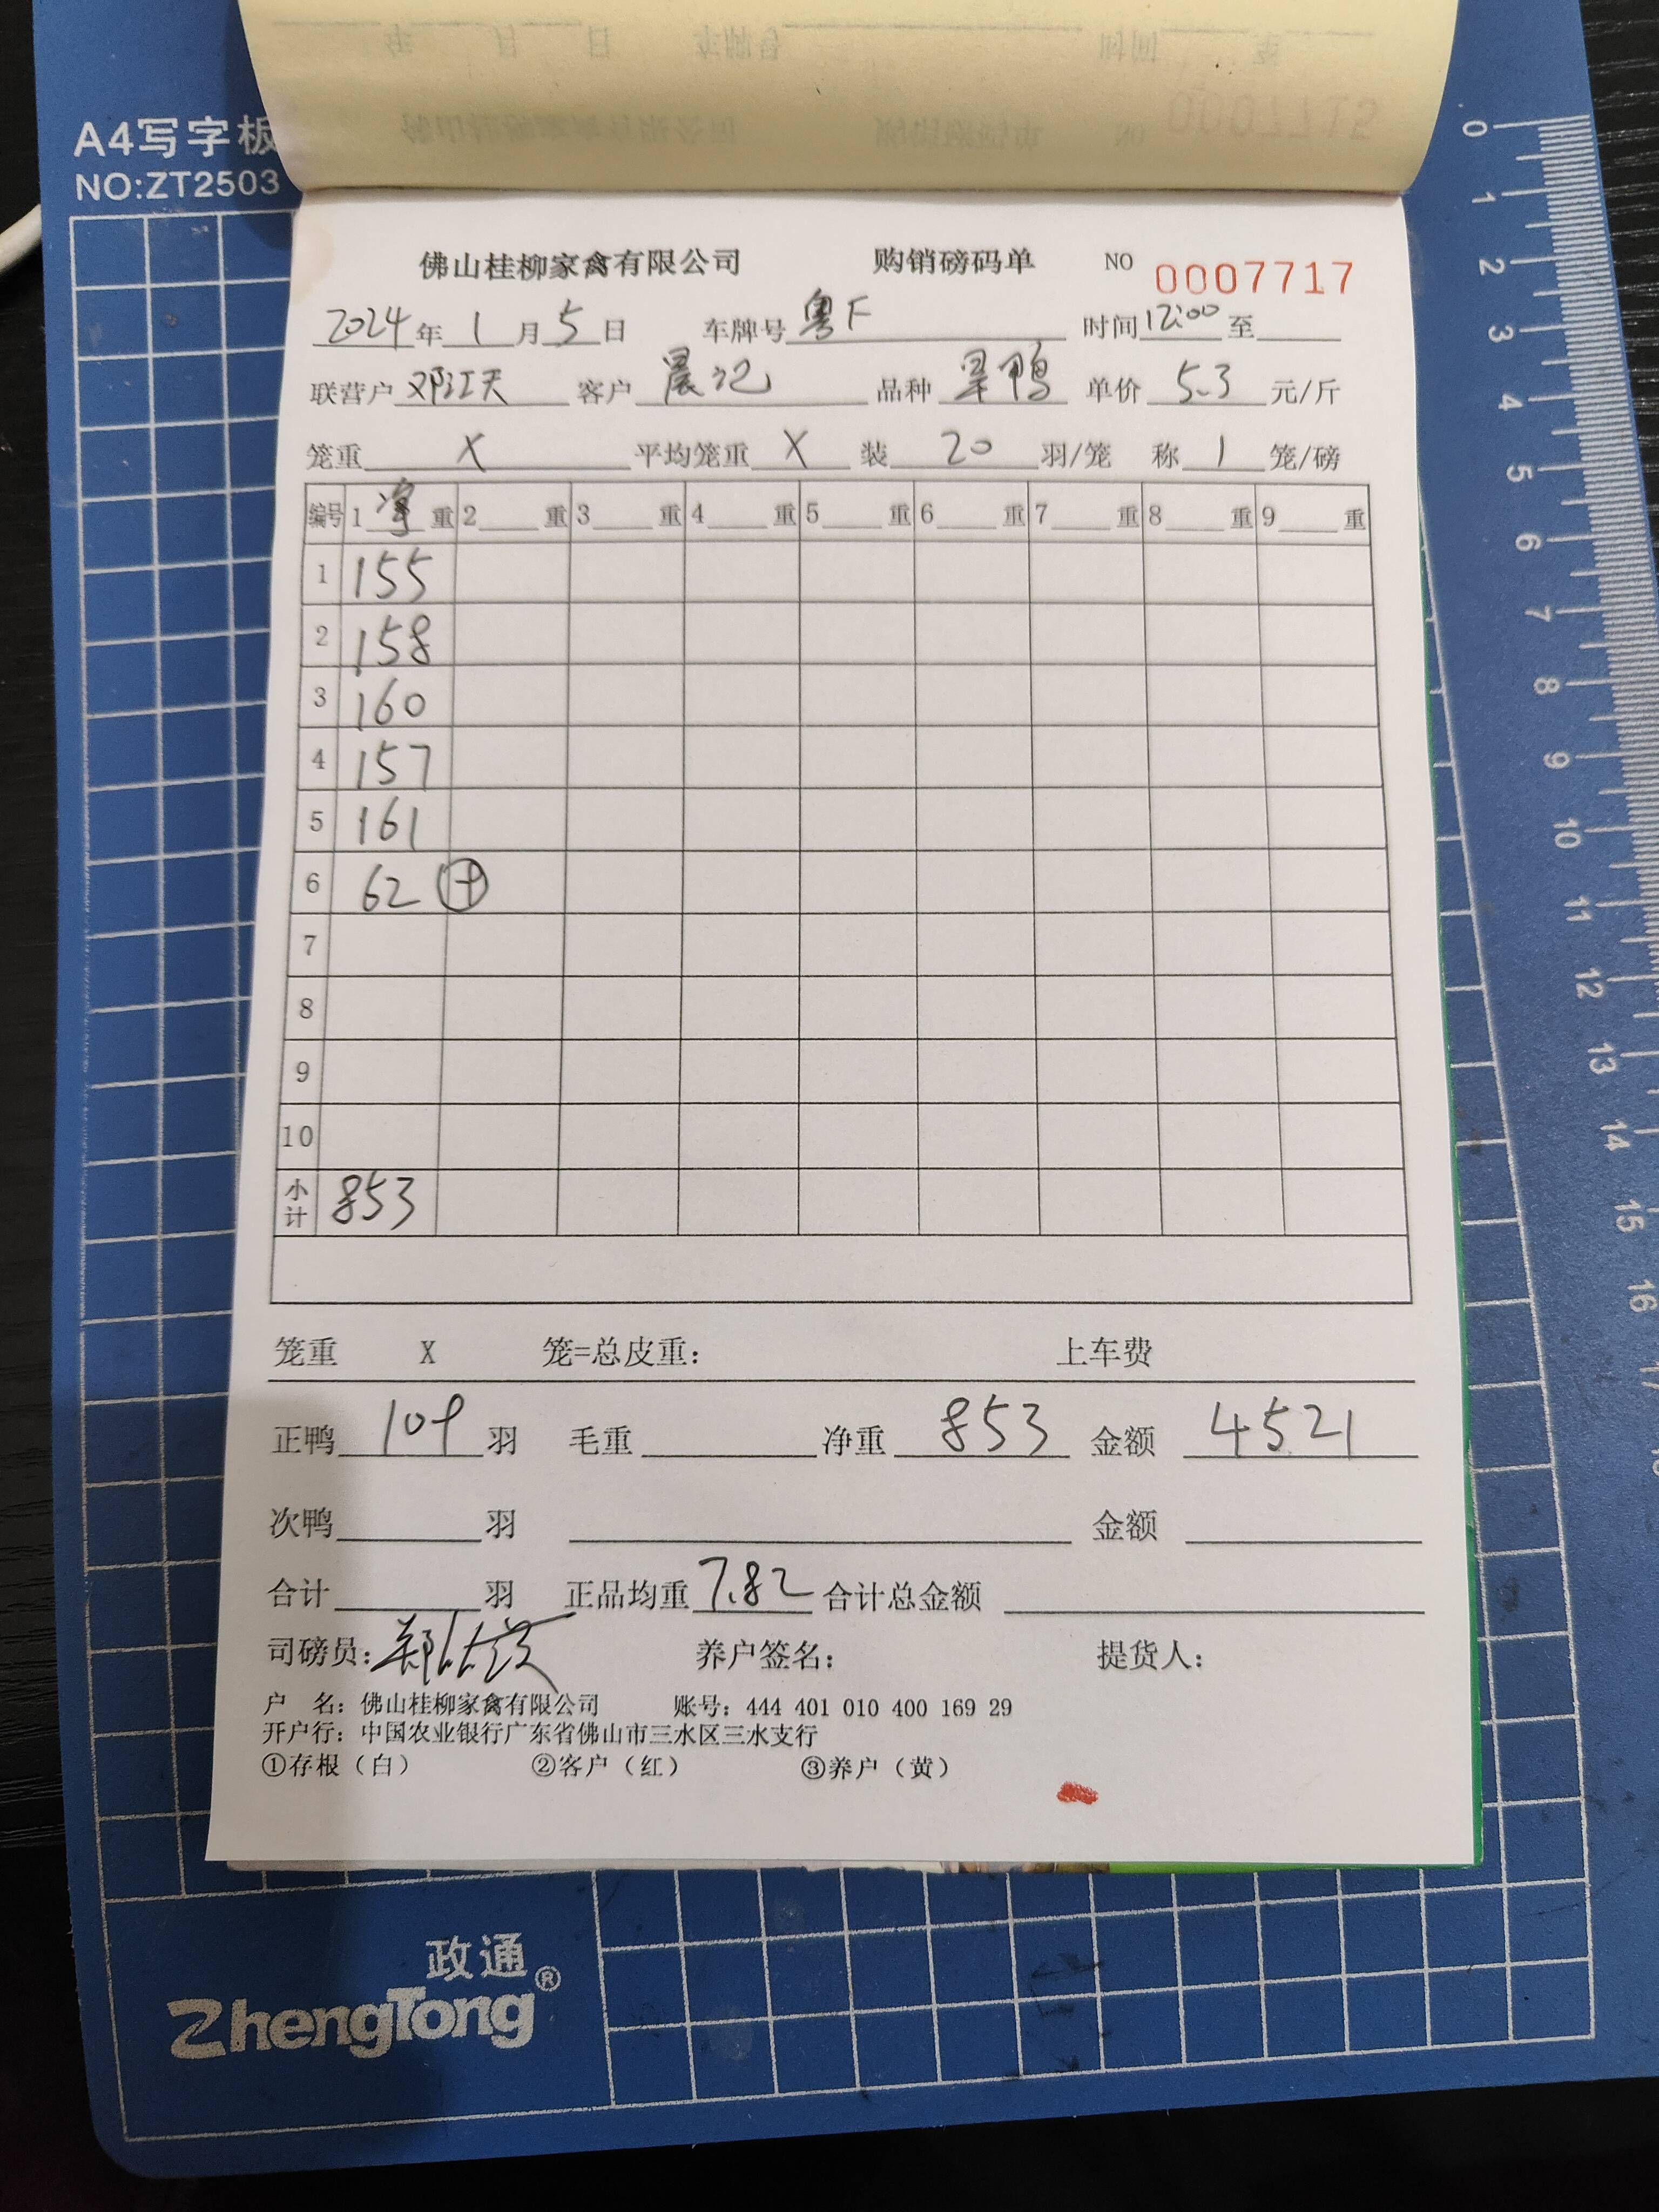 A4写字板
NO:ZT2503
佛山桂柳家禽有限公司 购销磅码单 NO 0007717
2024年1月5日 车牌号 粤F 时间 12:00 至
联营户 邓江天 客户 晨记 品种 旱鸭 单价 5.3 元/斤
笼重 X 平均笼重 X 装 20 羽/笼 称 1 笼/磅
编号 1 净 重 2 重 3 重 4 重 5 重 6 重 7 重 8 重 9 重
1 155
2 158
3 160
4 157
5 161
6 62 +
7
8
9
10
小计 853
笼重 X 笼=总皮重: 上车费
正鸭 109 羽 毛重 净重 853 金额 4521
次鸭 羽 金额
合计 羽 正品均重 7.82 合计总金额
司磅员: 养户签名: 提货人:
户 名: 佛山桂柳家禽有限公司 账号: 444 401 010 400 169 29
开户行: 中国农业银行广东省佛山市三水区三水支行
①存根（白） ②客户（红） ③养户（黄）
政通®
ZhengTong
0 1 2 3 4 5 6 7 8 9 10 11 12 13 14 15 16 17